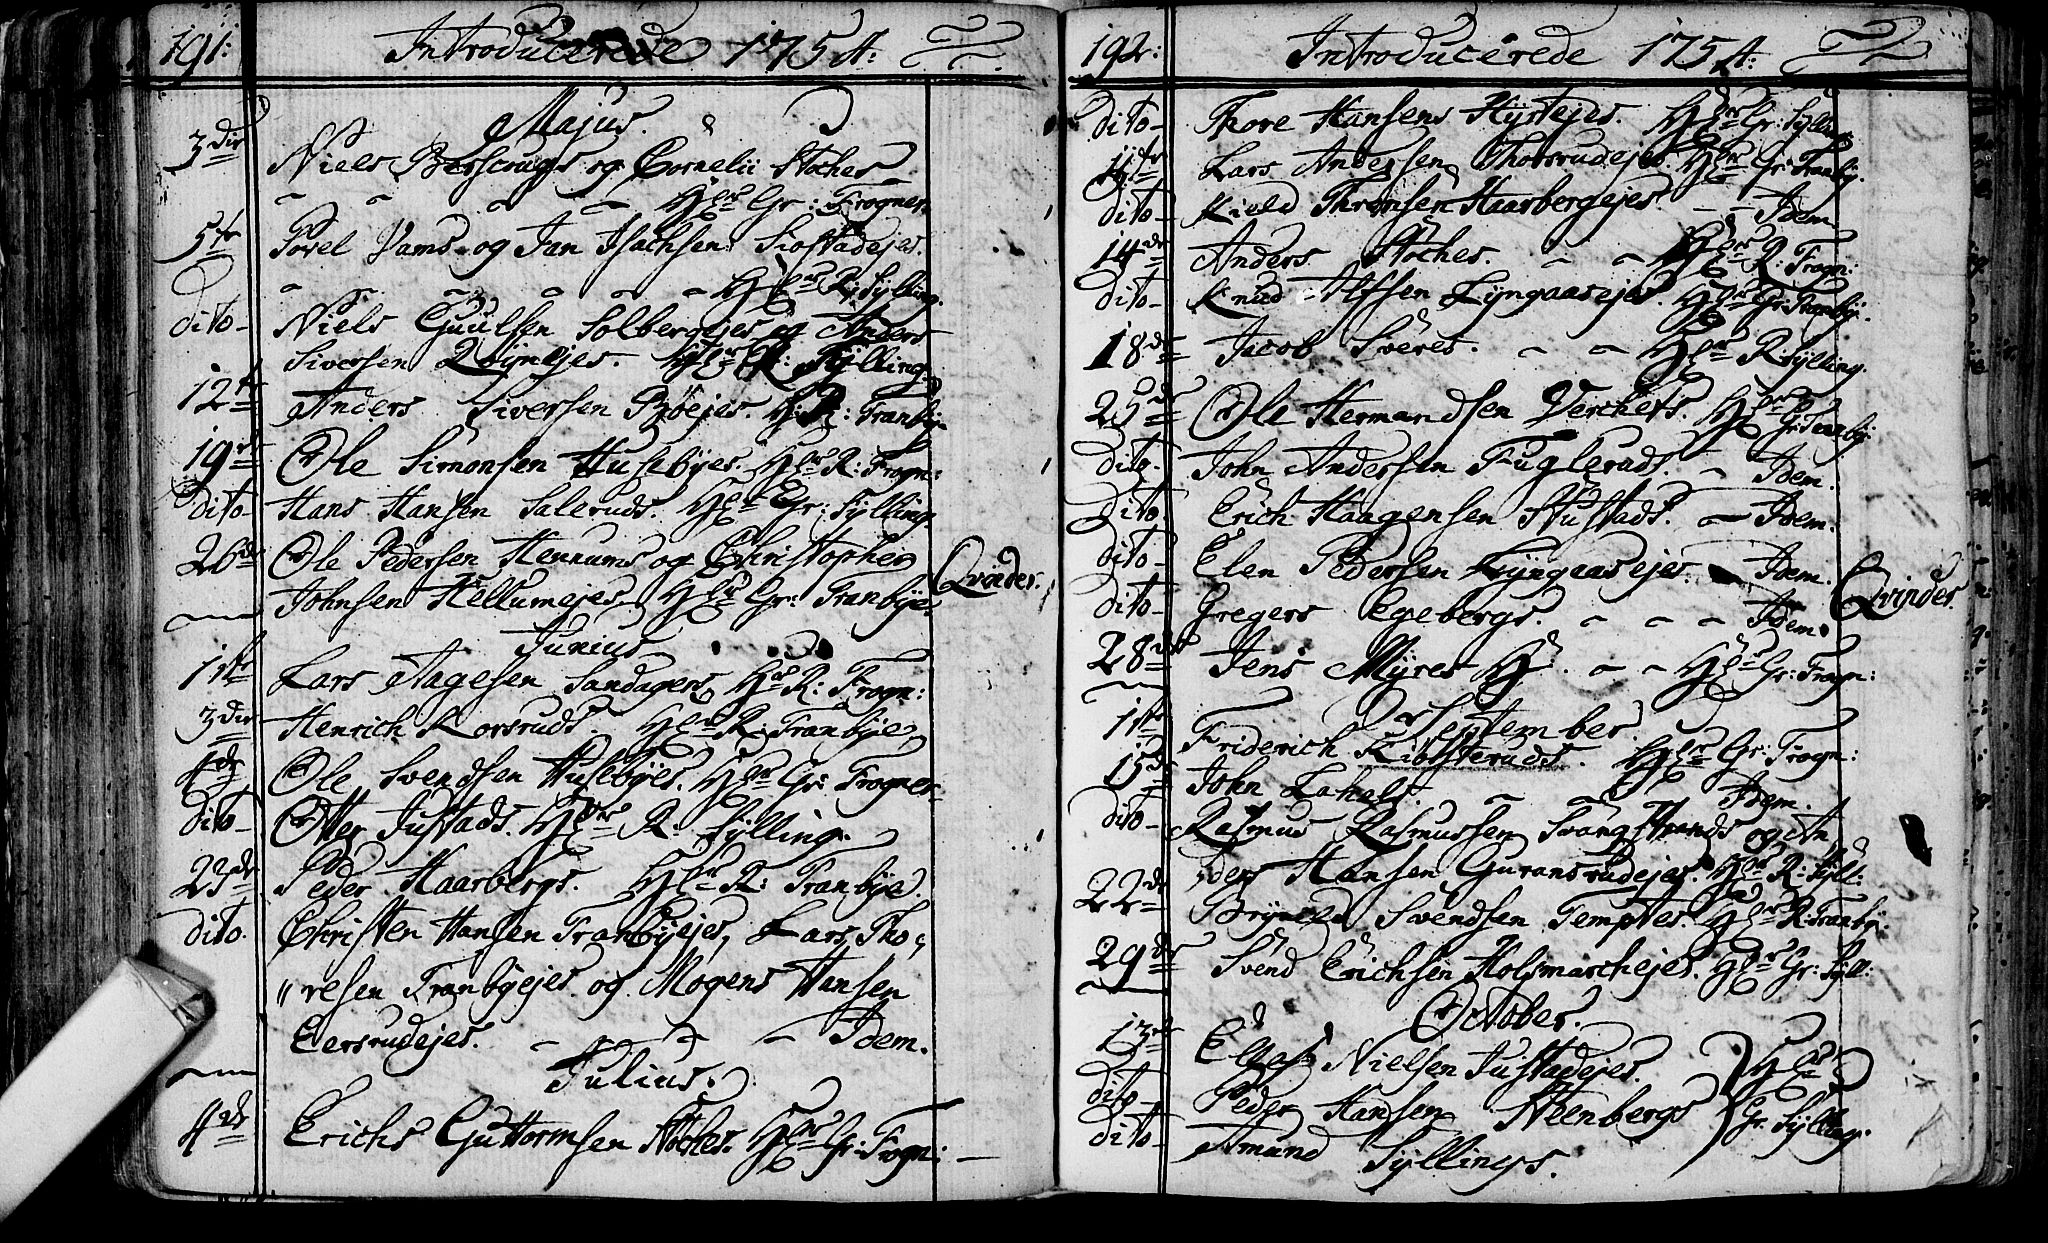 191:
Introducerede 1754:
Majus.
3die Niels Berscrugs og Cornelii Stoches
Hr Gr: Frogner.
5te Povel Vams og Jan Isachsen Siostadejes.
Hr R: Sylling.
dito- Niels Guulsen Solbergejes og Anders
Siversen Qvinejes. Hr R: Sylling.
12te Anders Siversen Bøejes. Hr R: Tranbye
19de Ole Simonsen Husebyes. Hr R: Frogn:
dito Hans Hansen Saleruds. Hr Gr: Sylling.
26de Ole Pedersen Hennums og Christopher
Johnsen Hellumejes Hr Gr: Tranbye.
Qvæder.
Junius
1ste Lars Aagesen Sandagers Hr R: Frogn:
3die Henrich Korsruds. Hr R: Tranbye
4de Ole Svendsen Husebyes. Hr Gr: Frogner
dito- Otter Justads. Hr R: Sylling.
23de Peder Haarbergs. Hr R: Tranbye.
dito. Christen Hansen Tranbyejes, Lars Tho,
"resen Tranbyejes. og Mogens Hansen
Eersrudejes. Idem.
Julius.
4de Erichs Guttormsen Stoches. Hr Gr: Frogn:
192:
Introducerede 1754:
dito- Thore Hansens Hystejes. Hr Gr: Sylling
11te Lars Andersen Thorsrudejes. Hr Gr: Tranby.
dito- Kield Thronsen Haarbergejes. Idem
14de Anders Stoches. Hr R: Frogn:
dito- Knud Alfsen Lyngaasejes. Hr Gr: Tranby.
18de Jacob Sveres. Hr R: Sylling.
25de Ole Hermandsen Verchets. Hr Gr: Tranby
dito. John Andersen Fuglerads. Idem.
dito Erich Haagensen Stustads. Idem.
dito- Elen Pedersen Lyngaasejes. Idem.
dito- Gregers Egebergs. Idem.
Qvinder.
28de Jens Myres Hr Gr: Frogn:
September.
1ste Friderich Kiosteruds. Hr Gr: Frogn:
15de John Lahels. Idem.
dito- Rasmus Rasmussen Svangstrands og An
ders Hansen Guransrudejes. Hr R: Syll:
22de Brynild Svendsen Temptes. Hr R: Tranby.
29de Svend Erichsen Holsmarchejes. Hr Gr: Syll:
October.
13de Ellef Nielsen Justadejes. Hr
dito- Peder Hansen Steenbergs Gr: Sylling.
dito- Amund Syllings.